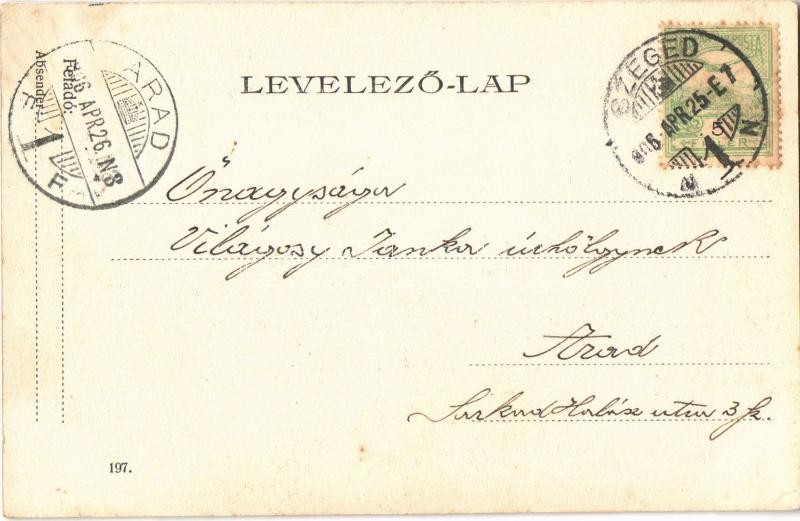 LEVELEZŐ-LAP
Feladó:
Absender:
ARAD
906 APR 26 N8
1
F
SZEGED
906 APR 25-E 7
1
N
POSTA
Őnagysága
Világosy Janka úrhölgynek
Arad
Sarkad utca 3 sz.
197.